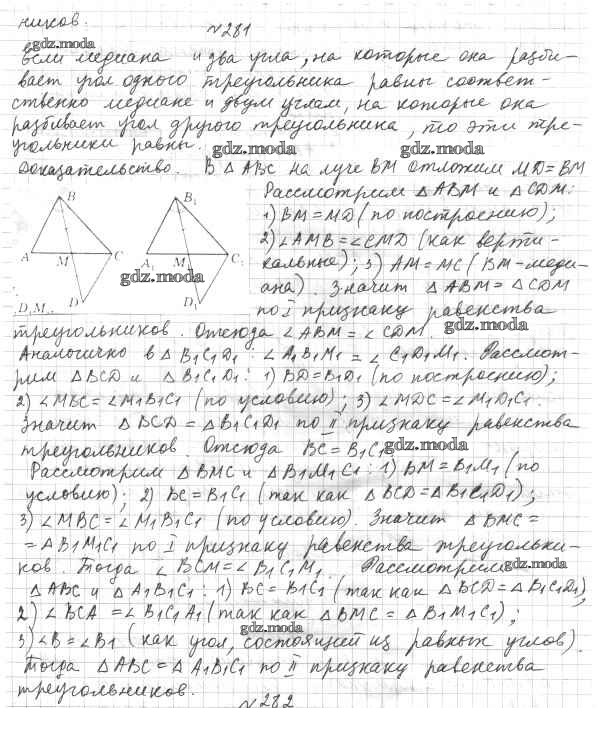 ников.
№281
gdz.moda
Если медиана и два угла, на которые она разби-
вает угол одного треугольника равны соответ-
ственно медиане и двум углам, на которые она
разбивает угол другого треугольника, то эти тре-
угольники равны.
gdz.moda gdz.moda
Доказательство. В △ABC на луче BM отложим MD=BM
Рассмотрим △ABM и △CDM:
1) BM=MD (по построению);
2) ∠AMB=∠CMD (как верти-
кальные); 3) AM=MC (BM-меди-
ана). Значит △ABM=△CDM
по I признаку равенства
B B₁
A M C A₁ M C₁
gdz.moda
D D₁
D₁M₁
треугольников. Отсюда ∠ABM=∠CDM
gdz.moda
Аналогично в △B₁C₁D₁: ∠A₁B₁M₁=∠C₁D₁M₁. Рассмот-
рим △BCD и △B₁C₁D₁: 1) BD=B₁D₁ (по построению);
2) ∠MBC=∠M₁B₁C₁ (по условию); 3) ∠MDC=∠M₁D₁C₁.
Значит △BCD=△B₁C₁D₁ по II признаку равенства
треугольников. Отсюда BC=B₁C₁
gdz.moda
Рассмотрим △BMC и △B₁M₁C₁: 1) BM=B₁M₁ (по
условию); 2) BC=B₁C₁ (так как △BCD=△B₁C₁D₁);
3) ∠MBC=∠M₁B₁C₁ (по условию). Значит △BMC=
=△B₁M₁C₁ по I признаку равенства треугольни-
ков. Тогда ∠BCM=∠B₁C₁M₁. Рассмотрим
gdz.moda
△ABC и △A₁B₁C₁: 1) BC=B₁C₁ (так как △BCD=△B₁C₁D₁),
2) ∠BCA=∠B₁C₁A₁ (так как △BMC=△B₁M₁C₁);
gdz.moda
3) ∠B=∠B₁ (как угол, состоящий из равных углов).
Тогда △ABC=△A₁B₁C₁ по II признаку равенства
треугольников.
№282